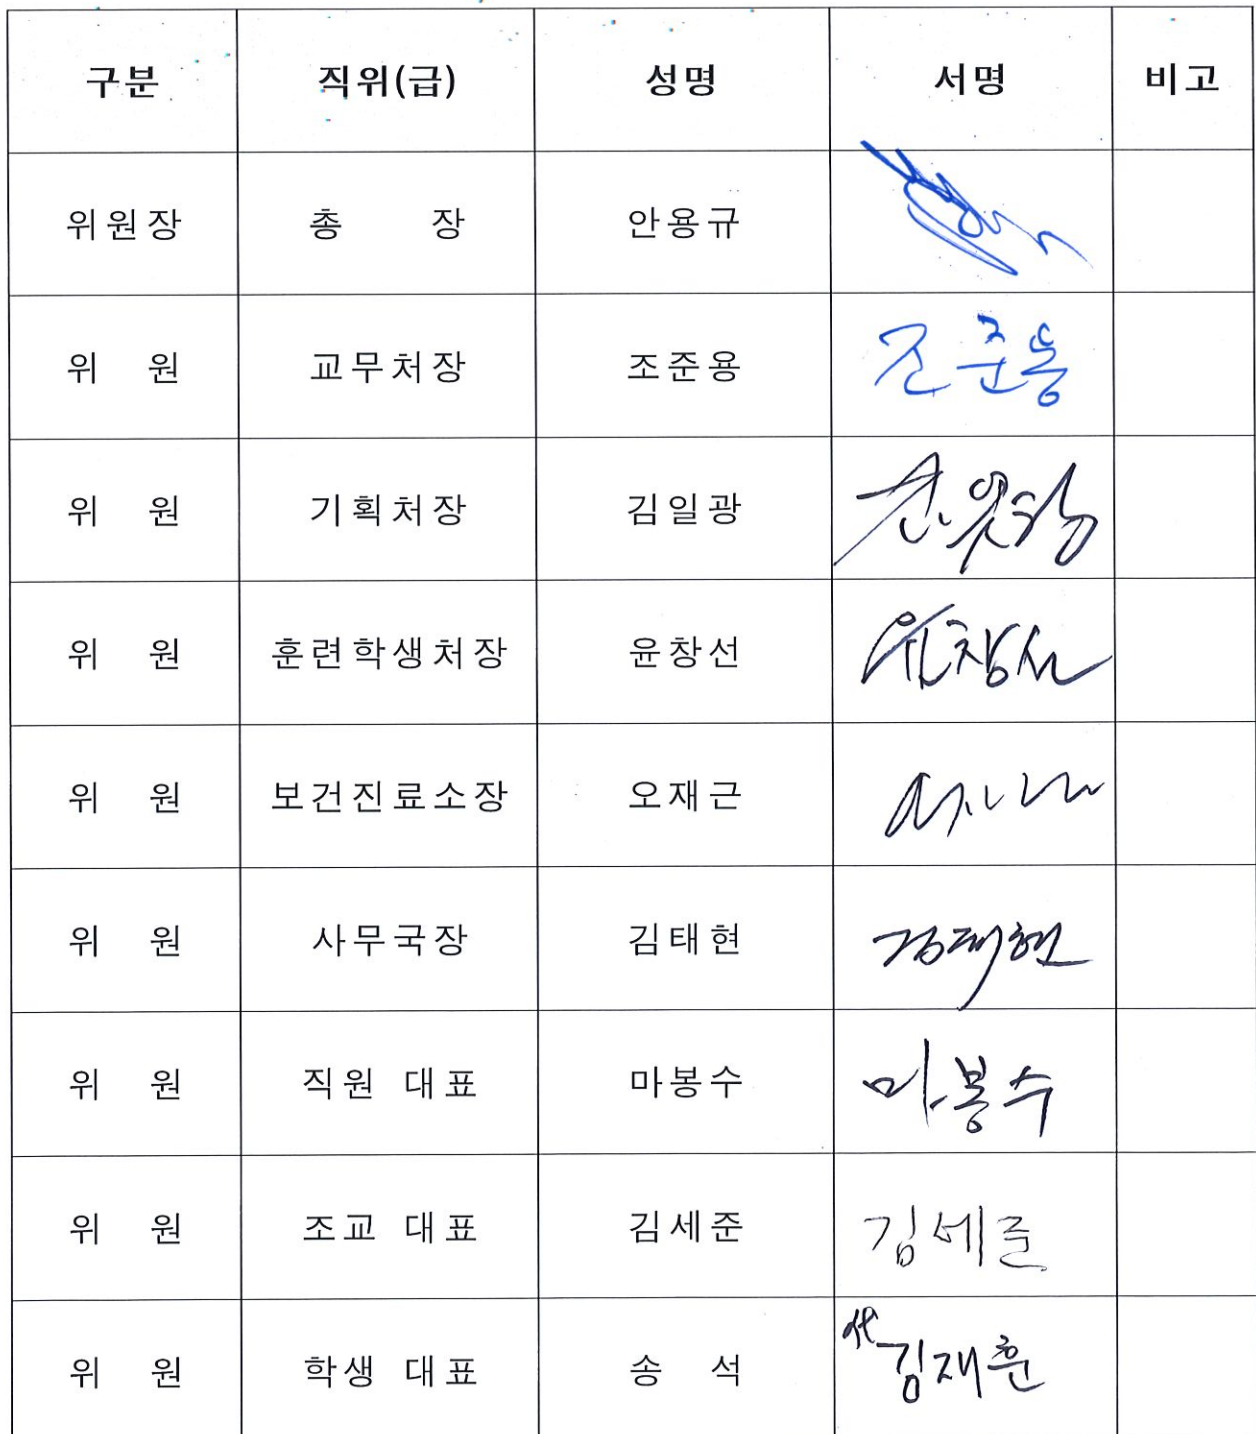 구분 직위(급) 성명 서명 비고
위원장 총 장 안용규
위 원 교무처장 조준용 조준용
위 원 기획처장 김일광
위 원 훈련학생처장 윤창선 윤창선
위 원 보건진료소장 오재근
위 원 사무국장 김태현 김태현
위 원 직원 대표 마봉수 마봉수
위 원 조교 대표 김세준 김세준
위 원 학생 대표 송 석 代 김재훈